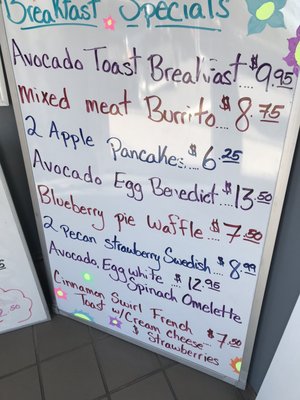 Breakfast Specials
Avocado Toast Breakfast $9.95
mixed meat Burrito $8.75
2 Apple Pancakes $6.25
Avocado Egg Benedict $13.50
Blueberry pie Waffle $7.50
2 Pecan strawberry Swedish $8.99
Avocado, Egg white Spinach Omelette $12.95
Cinnamon Swirl French
Toast w/Cream Cheese $7.50
& Strawberries